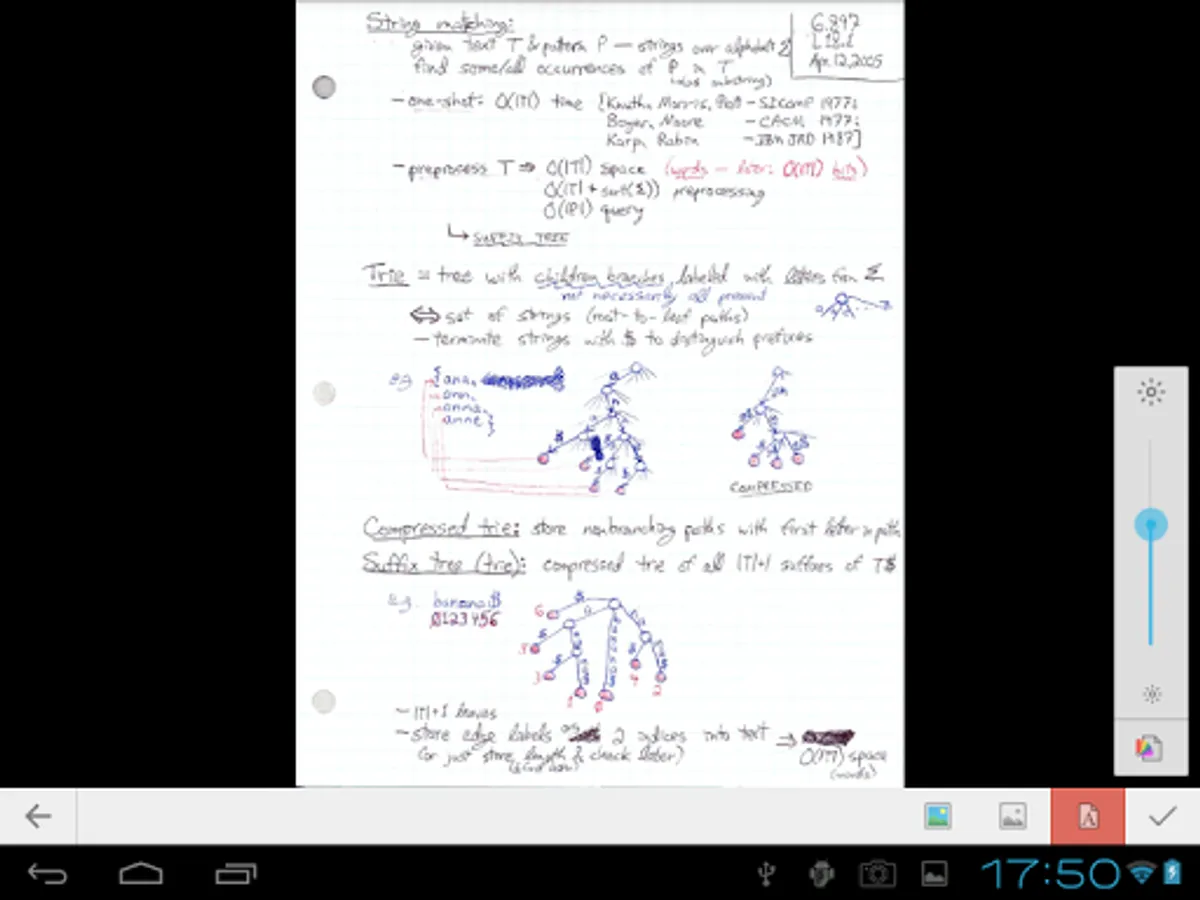 String matching:
6.897
given text T & pattern P — strings over alphabet Σ
Apr. 12, 2005
find some/all occurrences of P in T
(as substring)
— one-shot: O(|T|) time [Knuth, Morris, Pratt — SICOMP 1977;
Boyer, Moore — CACM 1977;
Karp, Rabin — IBM JRD 1987]
— preprocess T ⇒ O(|T|) space (words — later: O(|T|) bits)
O(|T| + sort(Σ)) preprocessing
O(|P|) query
↳ SUFFIX TREE
Trie = tree with children branches labeled with letters from Σ
not necessarily all present
⇔ set of strings (root-to-leaf paths)
— terminate strings with $ to distinguish prefixes
e.g. {ana,
ann,
anna,
anne}
COMPRESSED
Compressed trie: store nonbranching paths with first letter in path
Suffix tree (trie): compressed trie of all |T|+1 suffixes of T$
e.g. banana$
0123456
6
5
3
1
0
4
2
— |T|+1 leaves
— store edge labels as 2 indices into text ⇒
(or just store length & check later) O(|T|) space
(words)
17:50